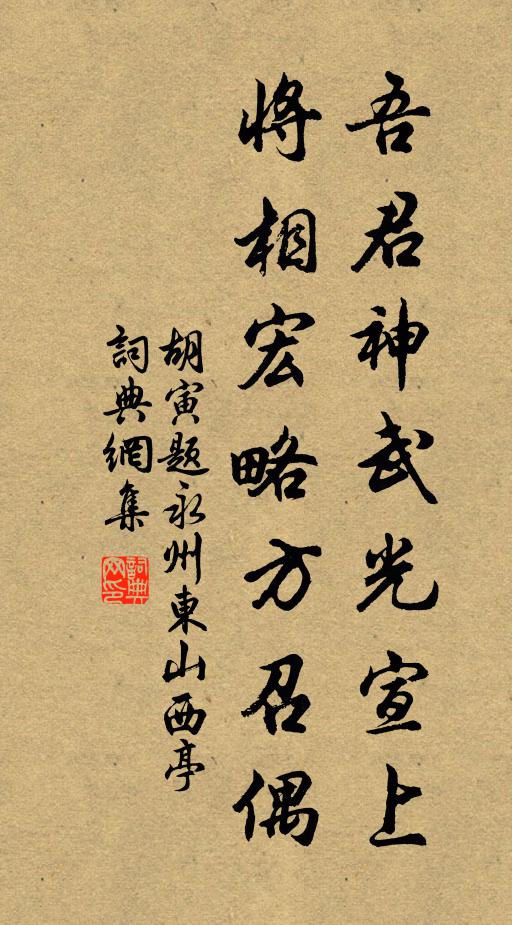 吾君神武光宣上
將相宏略方召偶
胡寅题永州東山西亭
詞典網集
詞典網印